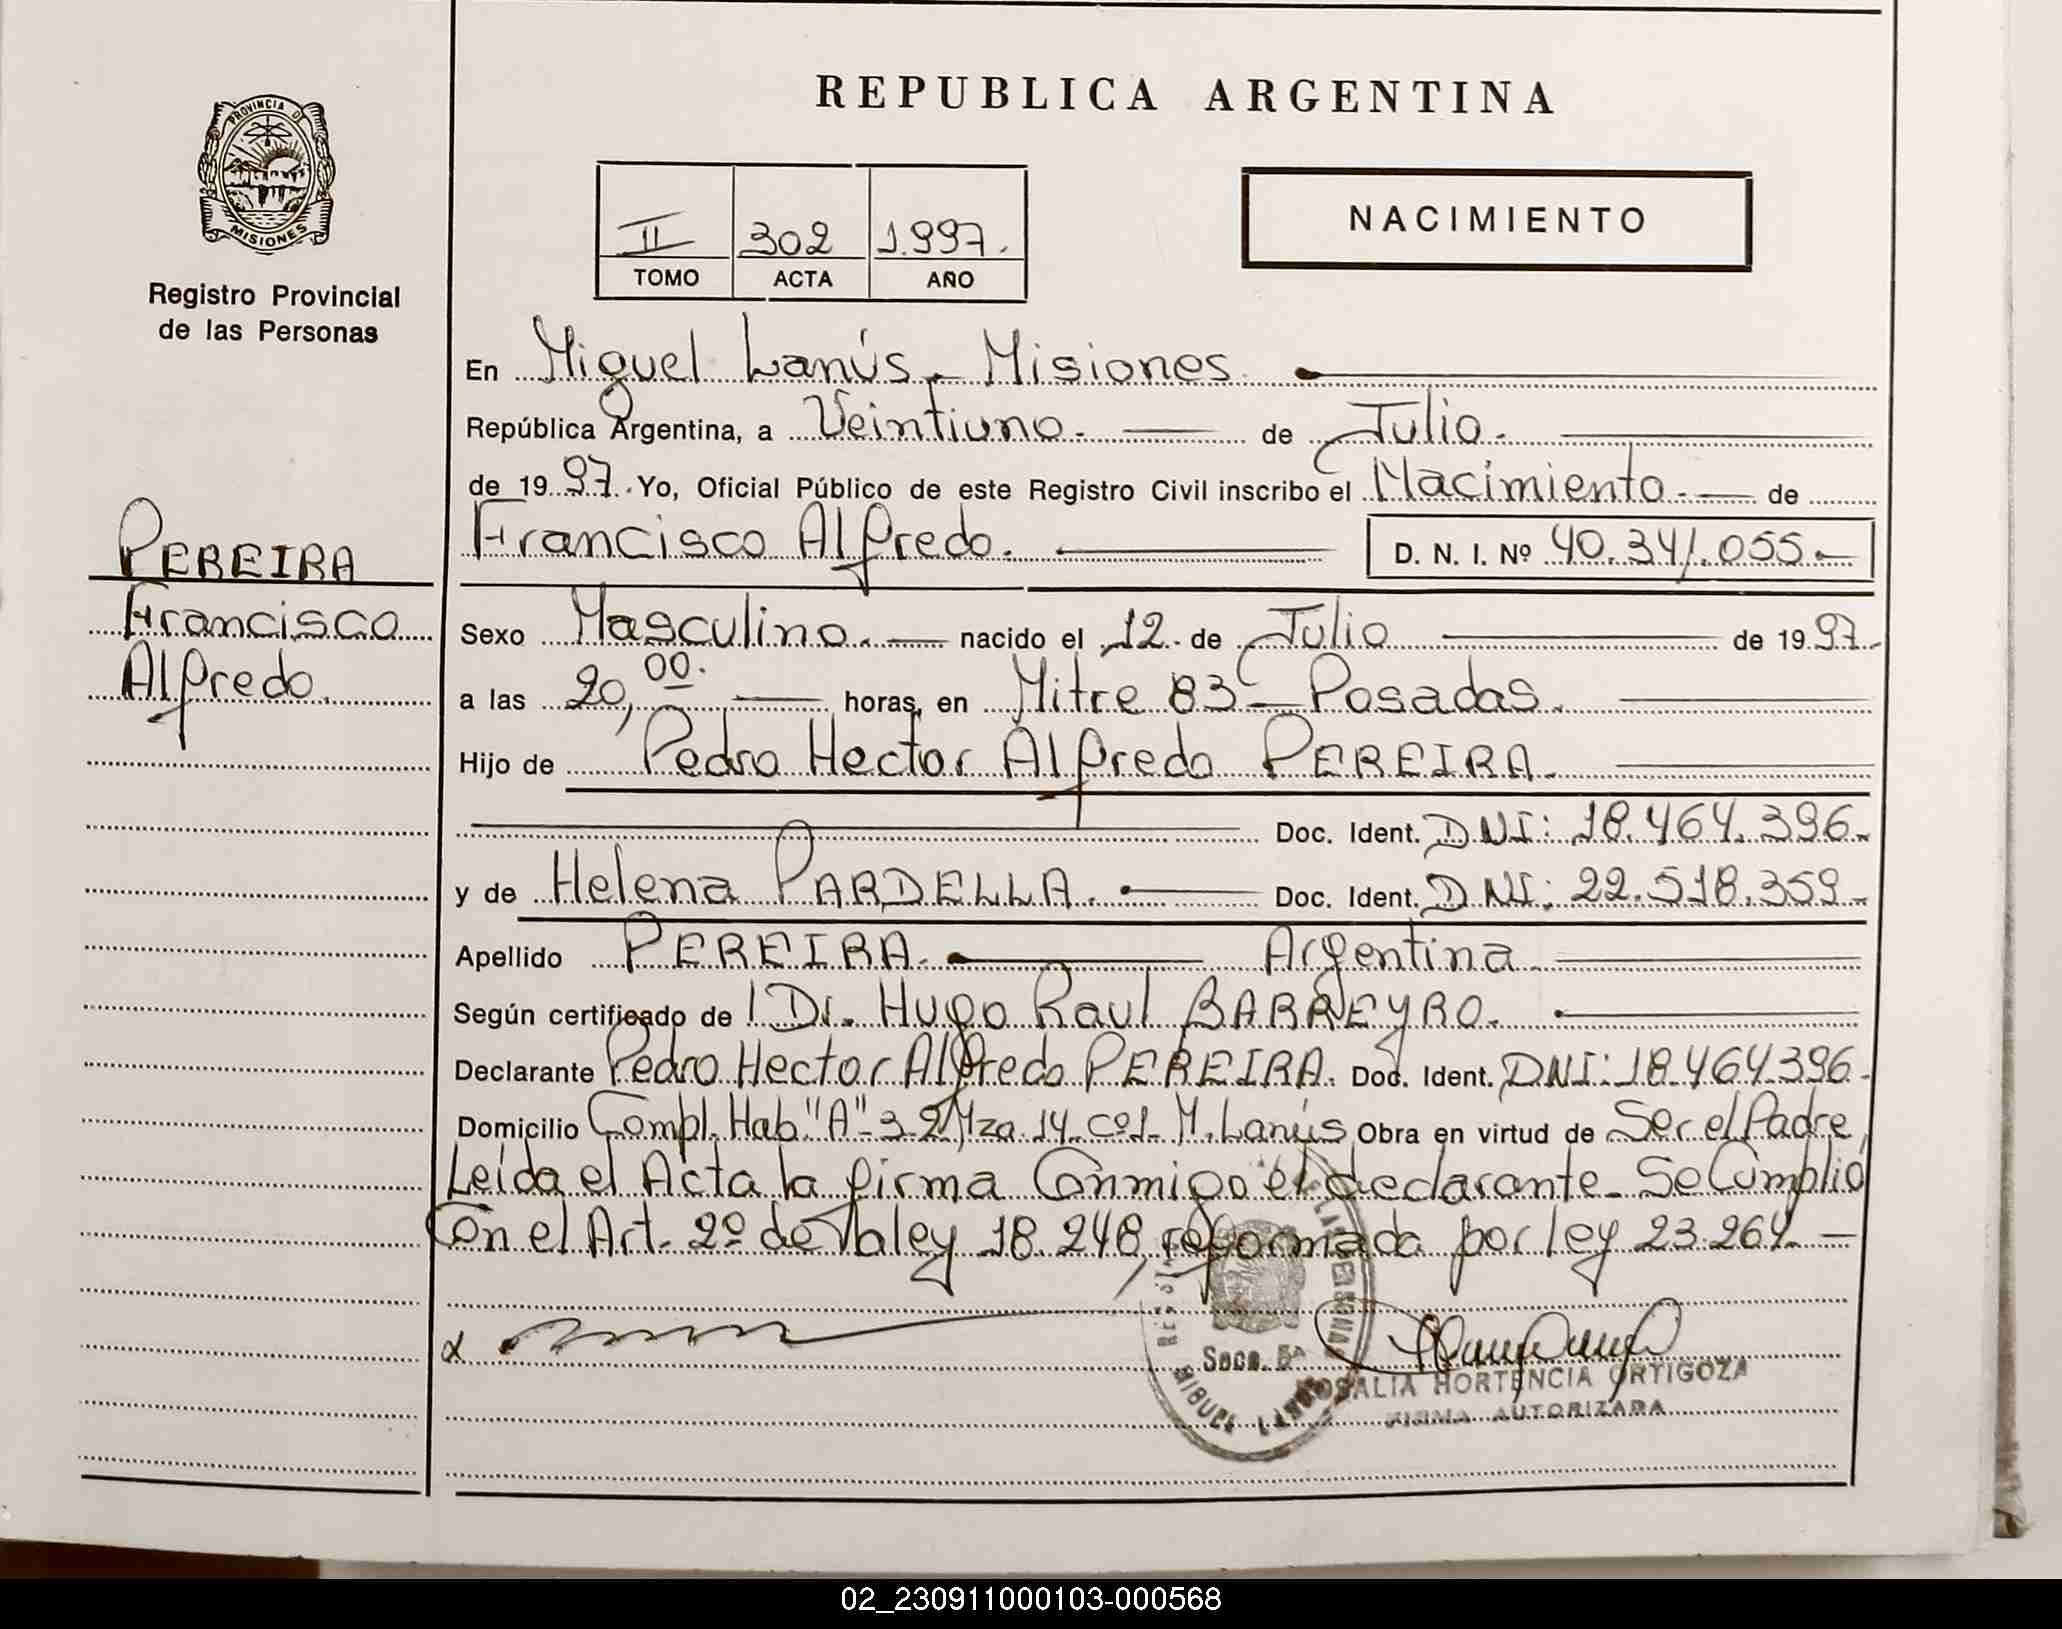 REPUBLICA ARGENTINA
PROVINCIA DE
MISIONES
Registro Provincial
de las Personas
II 302 1.997.
TOMO ACTA AÑO
NACIMIENTO
PEREIRA
Francisco
Alfredo.
En Miguel Lanús - Misiones
República Argentina, a Veintiuno. de Julio.
de 19 97. Yo, Oficial Público de este Registro Civil inscribo el Nacimiento. de
Francisco Alfredo. D. N. I. Nº 40.341.055.-
Sexo Masculino. nacido el 12. de Julio de 19 97.
a las 20,00. horas, en Mitre 83 - Posadas.
Hijo de Pedro Hector Alfredo PEREIRA.
Doc. Ident. DNI: 18.464.396.-
y de Helena PARDELLA. Doc. Ident. DNI: 22.518.359.-
Apellido PEREIRA. Argentina
Según certificado de l Dr. Hugo Raul BARREYRO.
Declarante Pedro Hector Alfredo PEREIRA. Doc. Ident. DNI: 18.464.396.
Domicilio Compl. Hab "A" - 3.2 Mza. 14. M. Lanús Obra en virtud de Ser el Padre,
Leída el Acta la firma Conmigo el declarante. Se Cumplió
Con el Art. 2º de la ley 18.248, reformada por ley 23.264. -
Secc. 5ª
ROSALIA HORTENCIA ORTIGOZA
FIRMA AUTORIZADA
02_230911000103-000568